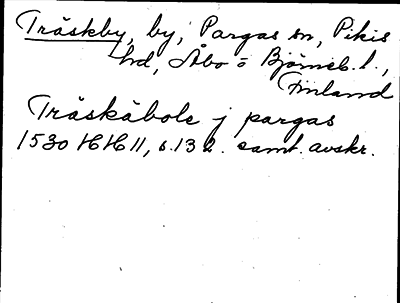 Träskby, by, Pargas sn, Pikis
hd, Åbo o Björneb. l.,
Finland
Träskäbole j pargas
1530 HH II, s. 132. samt. avskr.